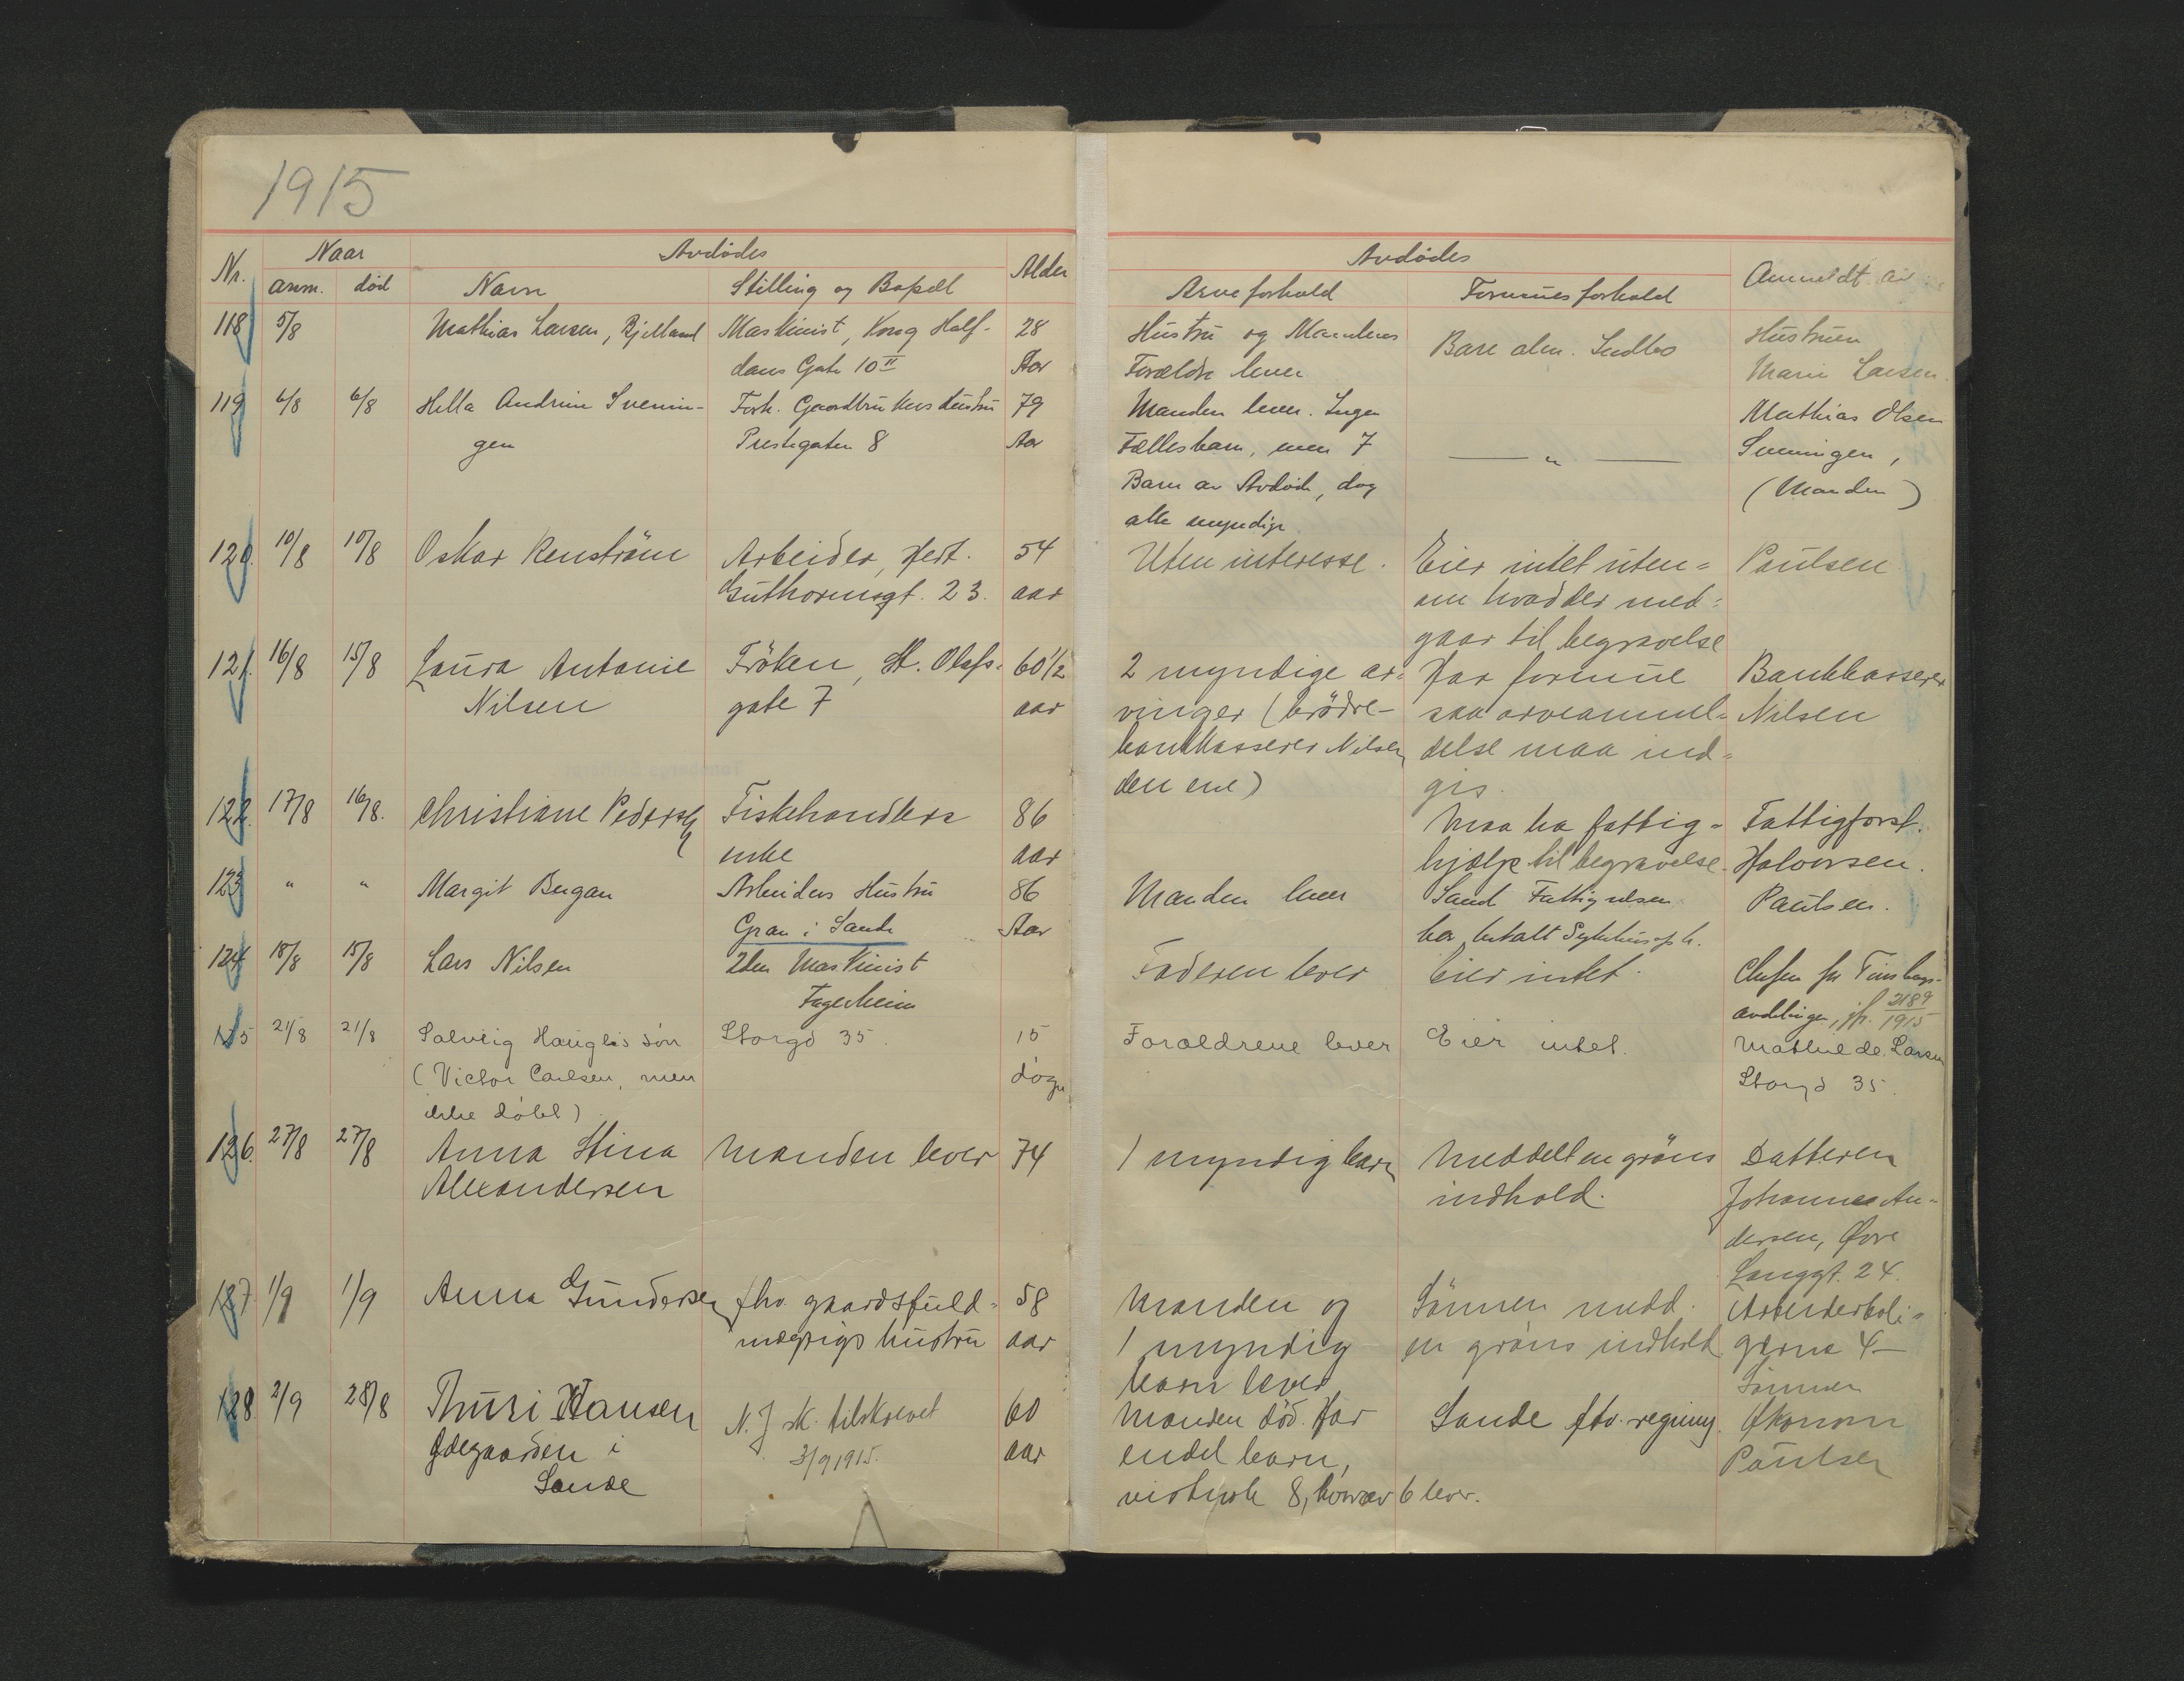 1915
Nr. Naar Avdødes Alder
anm. død Navn Stilling og Bopæl
Avdødes Anmeldt av
Arveforhold Formuesforhold
118 5/8 Mathias Larsen, Bjelland Maskinist, Kong Half- 28 Hustru og Mandens Bare alm. Indbo Hustruen
dans Gate 10 II Aar Forældre lever Marie Larsen.
119 6/8 6/8 Andrine Svenin- Forh. Gaardbrukers Hustru 79 Manden lever. Ingen Mathias Olsen
gen Prestegaten 8 Aar Fællesbarn, men 7 — " — Sveningen,
Barn av Avdøde, dog (Manden)
alle myndige
120. 10/8 10/8 Oskar Renström Arbeider, Hert. 54 Uten interesse. Eier intet uten= Paulsen
Guthormsgt. 23. aar om hvad der med=
gaar til begravelse
121. 16/8 15/8 Laura Antonie Fröken, St. Olafs- 60 1/2 2 myndige ar= Har formue Bankkasserer
Nilsen gate 7 aar vinger (brödre- saa arveanmel= Nilsen
bankkasserer Nilsen delse maa ind=
den ene) gis.
122. 17/8 16/8. Christiane Pedersen Fiskehandlers 86 Maa ha fattig= Fattigforst.
enke aar hjælp til begravelse. Halvorsen.
123 " " Margit Bergan Arbeiders Hustru 86 Manden lever Sande Fattigvæsen Paulsen.
Gran i Sande Aar har betalt Sykehusoph.
124 18/8 15/8 Lars Nilsen 2den Maskinist Faderen lever Eier intet. Chefen for
Fagerheim avdelingen, jfr. 2189/1915
125 21/8 21/8 Solveig Hauglis søn Storgd 35. 15 Foraldrene lever Eier intet. Mathilde Larsen
(Victor Carlsen, men døgn Storgd 35.
ikke døbt)
126. 27/8 27/8 Anna Stina Manden lever 74 1 myndig barn Meddelt en gröns Datteren
Alexandersen indhold. Johanne An-
dersen, Øvre
Langgt. 24.
127 1/9 1/9 Anna Gundersen fhv. gaardsfuld= 58 Manden og Sönnen medd. Arbeiderboli=
mægtigs hustru aar 1 myndig en gröns indhold gerne 4—
barn lever Sönnen
128. 2/9 28/8 Thuri Hansen N. J sk. tilskrevet 60 Manden död. Har Sande ftv. regning. Økonom
Ødegaarden i 3/9 1915. aar endel barn, Paulsen
Sande vistnok 8, hvorav 6 lever.